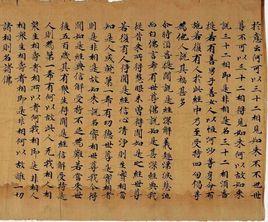 於意云何可以三十二相見如來不不也世
尊不可以三十二相得見如來何以故如來
說三十二相即是非相是名三十二相須菩
提若有善男子善女人以恒河沙等身命布
施若復有人於此經中乃至受持四句偈等
為他人說其福甚多
尒時須菩提聞說是經深解義趣涕淚悲泣
而白佛言希有世尊佛說如是甚深經典我
從昔來所得慧眼未曾得聞如是之經世尊
若復有人得聞是經信心清淨則生實相當
知是人成就第一希有功德世尊是實相者
則是非相是故如來說名實相世尊我今得
聞如是經典信解受持不足為難若當來世
後五百歲其有眾生得聞是經信解受持是
人則為第一希有何以故此人无我相人相
眾生相壽者相所以者何我相即是非相人
相眾生相壽者相即是非相何以故離一切
諸相則名諸佛